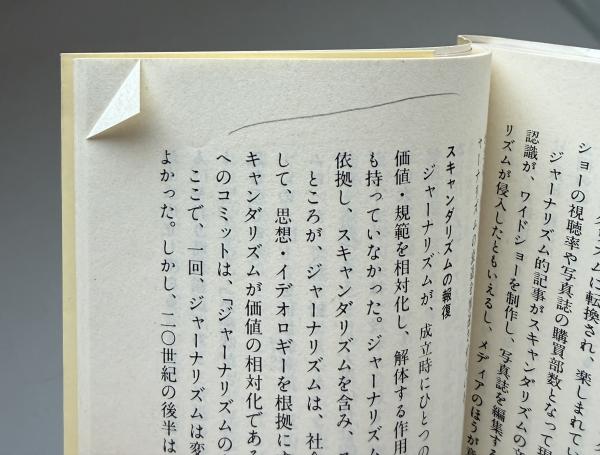 ズムに転換され、楽しまれてい
ショーの視聴率や写真誌の購買部数となって現
ジャーナリズム的記事がスキャンダリズムの文
認識が、ワイドショーを制作し、写真誌を編集する
リズムが侵入したともいえるし、メディアのほうが意
スキャンダリズムの報復
ジャーナリズムが、成立時にひとつの
価値・規範を相対化し、解体する作用
も持っていなかった。ジャーナリズム
依拠し、スキャンダリズムを含み、ス
ところが、ジャーナリズムは、社会
して、思想・イデオロギーを根拠にす
キャンダリズムが価値の相対化である
へのコミットは、「ジャーナリズムの
ここで、一回、ジャーナリズムは変
よかった。しかし、二〇世紀の後半は